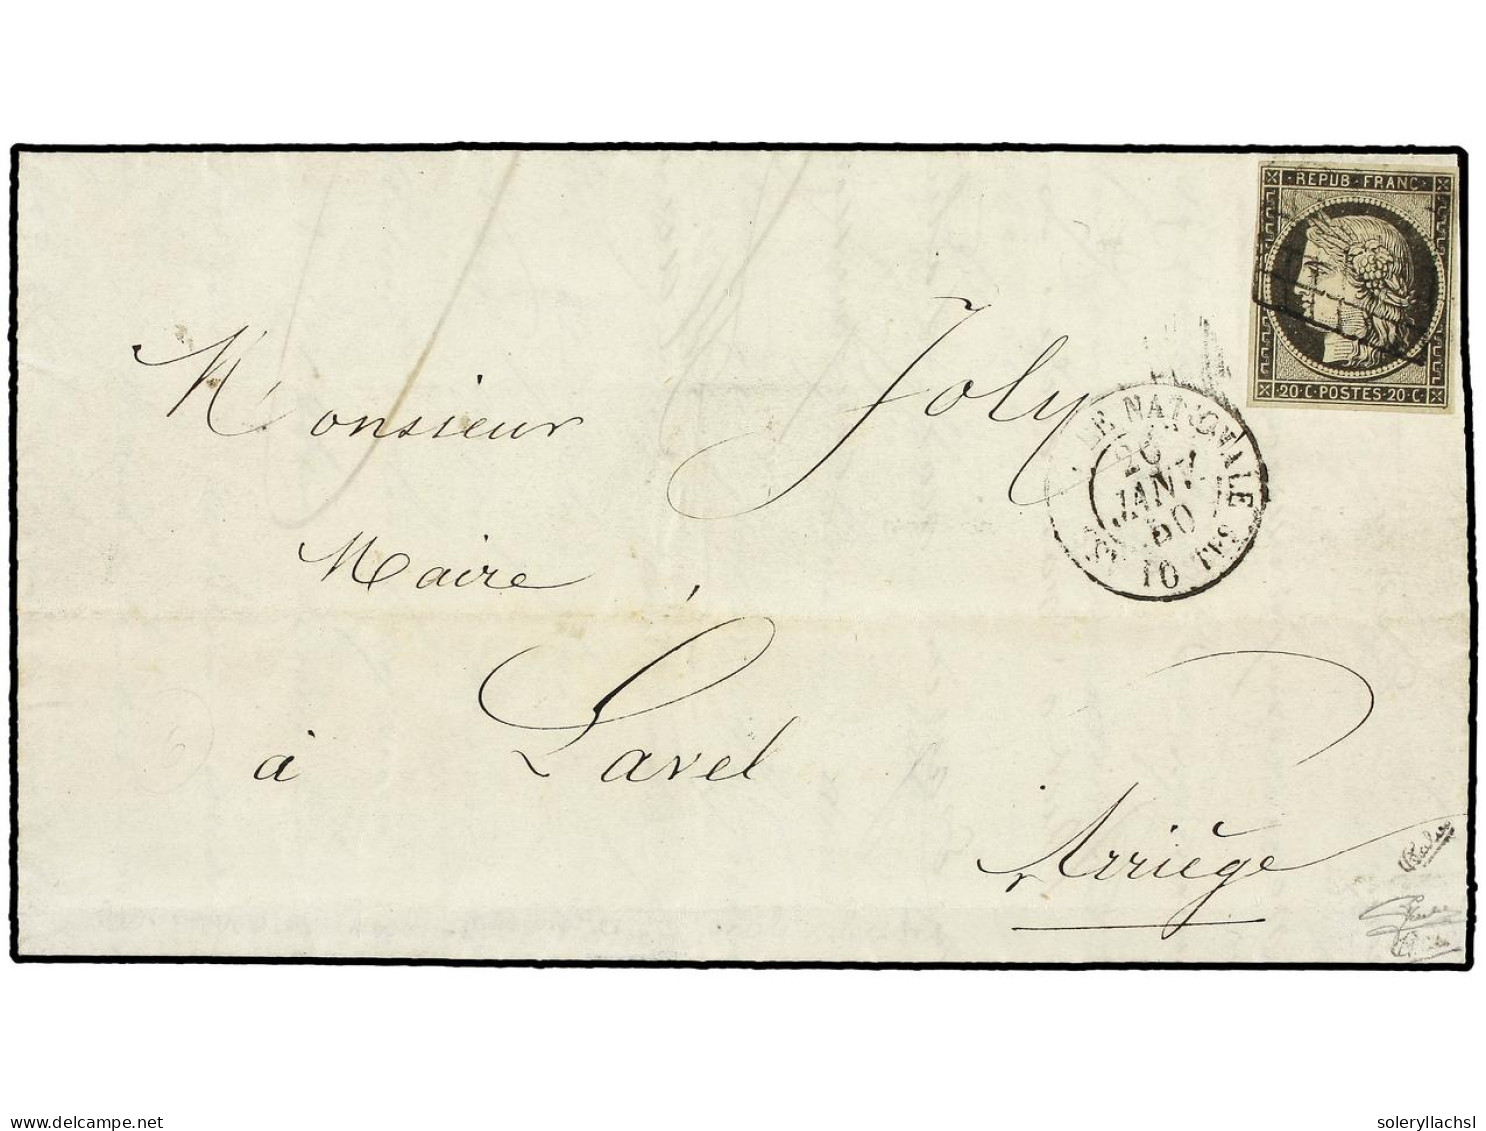 REPUB · FRANC ·
20 · C · POSTES · 20 · C ·
Monsieur Joly
Maire
à Lavel
Arriège
LE NATIONALE
26
JANV.
50
10
delcampe.net
soleryllachsl